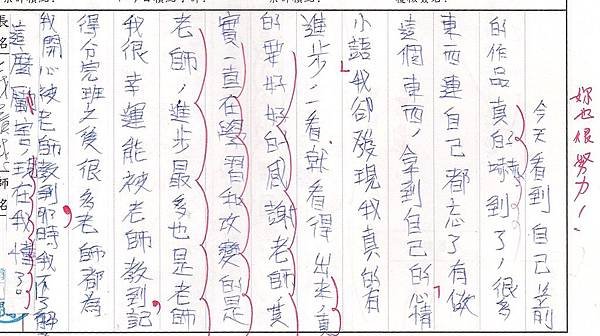 妳也很努力！
今天看到自己以前
的作品真自己嚇到了，很多
東西連自己都忘了有做
這個東西，拿到自己的心情
小語我卻發現我真的有
進步，一看就看得出來，真
的要好好的感謝老師，其
實一直在學習和改變的是
老師，進步最多也是老師
我很幸運能被老師教到，記
得分完班之後很多老師都為
我開心被老師教到，那時我不了解
這麼厲害現在我懂了。
長名
師名